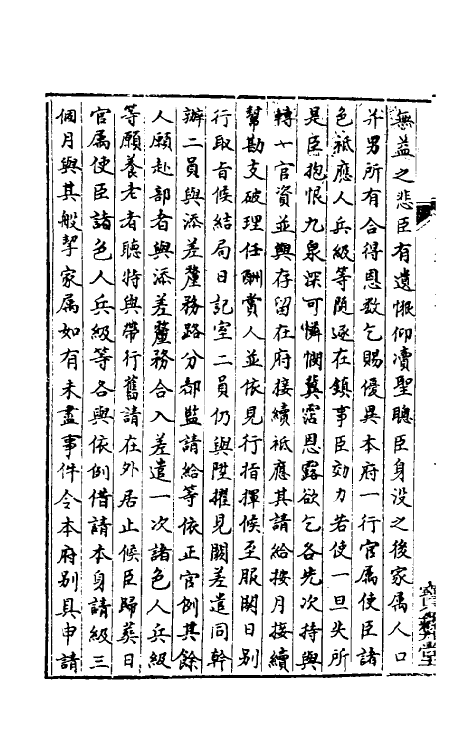 無益之悲臣有遺恨仰凟聖聽臣身没之後家属人口
并男所有合得恩数乞賜優異本府一行官属使臣諸
色祗應人兵級等随逐在鎮事臣効力若使一旦失所
是臣抱恨九泉深可憐憫冀霑恩露欲乞各先次特與
轉一官資並與存留在府接續祗應其請給按月接續
幫勘支破理任酬賞人並依見行指揮候至服闋日别
行取旨候結局日記室二員仍與陞擢見闕差遣同幹
辦二員與添差釐務路分都監請給等依正官例其餘
人願赴部者與添差釐務合入差遣一次諸色人兵級
等願養老者聽特與帶行舊請在外居止候臣歸葬日
官属使臣諸色人兵級等各與依例借請本身請級三
個月與其般挈家属如有未盡事件令本府别具申請